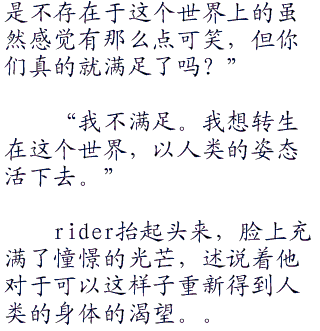 是不存在于这个世界上的虽
然感觉有那么点可笑，但你
们真的就满足了吗？”
“我不满足。我想转生
在这个世界，以人类的姿态
活下去。”
rider抬起头来，脸上充
满了憧憬的光芒，述说着他
对于可以这样子重新得到人
类的身体的渴望。。